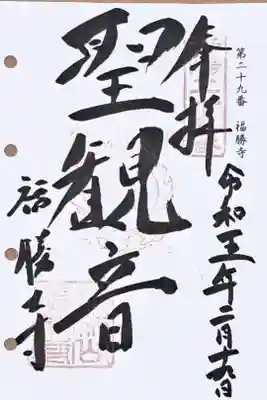 第二十九番　福勝寺
奉拝
令和五年二月十九日
聖観音
福勝寺